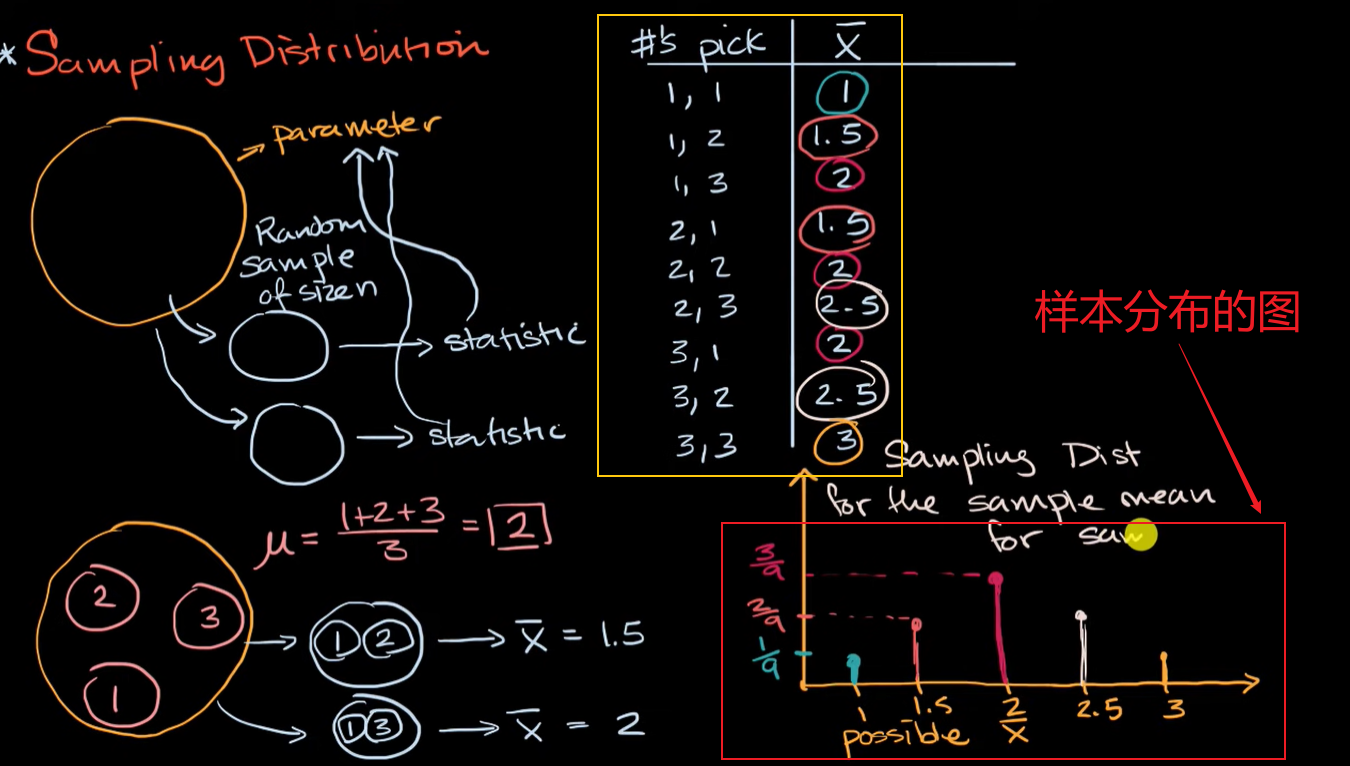 * Sampling Distribution
parameter
Random
sample
of size n
statistic
statistic
#'s pick x̄
1, 1 1
1, 2 1.5
1, 3 2
2, 1 1.5
2, 2 2
2, 3 2.5
3, 1 2
3, 2 2.5
3, 3 3
样本分布的图
μ = 1+2+3/3 = 2
2
3
1
1 2 x̄ = 1.5
1 3 x̄ = 2
Sampling Dist
for the sample mean
for sam
3/9
2/9
1/9
1 1.5 2 2.5 3
possible x̄